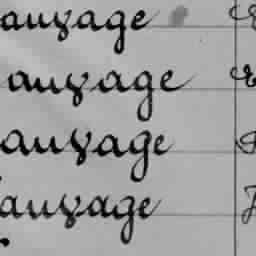 auvage
auvage
auvage
auvage